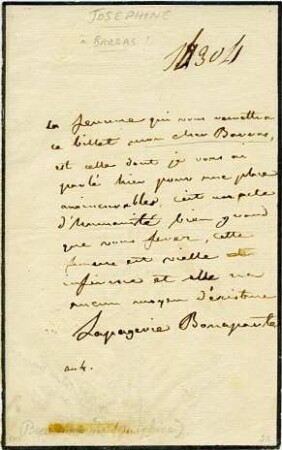 JOSEPHINE
à BARRAS
La femme qui vous remettra
ce billet mon cher Barras,
est celle dont je vous ai
parlé hier pour une place
aux incurables, c'est un acte
d'humanité bien grand
que vous ferez, cette
femme est vielle et
infirme et elle n'a
aucun moyen d'existence
Lapagerie Bonaparte